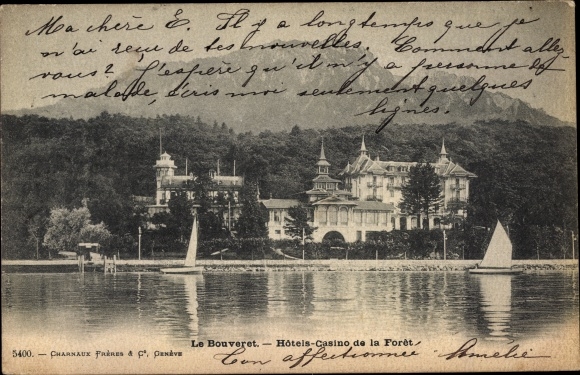 Ma chère E. Il y a longtemps que je
n'ai reçu de tes nouvelles. Comment allez-
vous? J'espère qu'il n'y a personne de
malade, écris moi seulement quelques
lignes.
Le Bouveret. — Hôtels-Casino de la Forêt
5400. — CHARNAUX FRÈRES & Cº, GENÈVE
Ton affectionnée Amélie